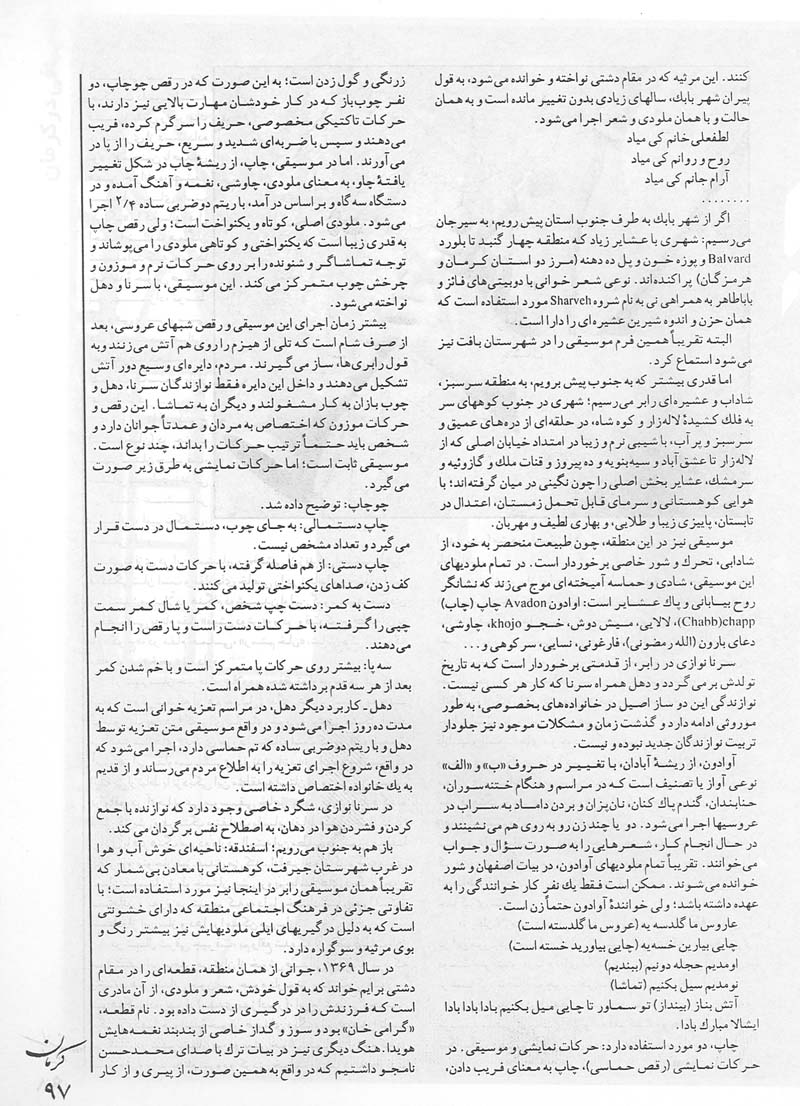 کنند. این مرثیه که در مقام دشتی نواخته و خوانده می‌شود، به قول
پیران شهر بابك، سالهای زیادی بدون تغییر مانده است و به همان
حالت و با همان ملودی و شعر اجرا می‌شود.
لطفعلی خانم کی میاد
روح و روانم کی میاد
آرام جانم کی میاد
........
اگر از شهر بابك به طرف جنوب استان پیش رویم، به سیرجان
می‌رسیم: شهری با عشایر زیاد که منطقه چهار گنبد تا بلورد
Balvard و پوزه خون و پل ده دهنه (مرز دو استان کرمان و
هرمزگان) پراکنده‌اند. نوعی شعر خوانی با دوبیتی‌های فائز و
باباطاهر به همراهی نی به نام شروه Sharveh مورد استفاده است که
همان حزن و اندوه شیرین عشیره‌ای را دارا است.
البته تقریباً همین فرم موسیقی را در شهرستان بافت نیز
می‌شود استماع کرد.
اما قدری بیشتر که به جنوب پیش برویم، به منطقه سرسبز،
شاداب و عشیره‌ای رابر می‌رسیم؛ شهری در جنوب کوههای سر
به فلك کشیدهٔ لاله‌زار و کوه شاه، در حلقه‌ای از دره‌های عمیق و
سرسبز و پر آب، با شیبی نرم و زیبا در امتداد خیابان اصلی که از
لاله‌زار تا عشق آباد و سیه‌بنویه و ده پیروز و قنات ملك و گازوئیه و
سرمشك، عشایر بخش اصلی را چون نگینی در میان گرفته‌اند؛ با
هوایی کوهستانی و سرمای قابل تحمل زمستان، اعتدال در
تابستان، پاییزی زیبا و طلایی، و بهاری لطیف و مهربان.
موسیقی نیز در این منطقه، چون طبیعت منحصر به خود، از
شادابی، تحرك و شور خاصی برخوردار است. در تمام ملودیهای
این موسیقی، شادی و حماسه آمیخته‌ای موج می‌زند که نشانگر
روح بیابانی و پاك عشایر است: اوادون Avadon چاپ (چاپ)
chapp(Chabb)، لالایی، میش دوش، خجو khojo، چاوشی،
دعای بارون (الله رمضونی)، فارغونی، نسایی، سرکوهی و...
سرنا نوازی در رابر، از قدمتی برخوردار است که به تاریخ
تولدش بر می‌گردد و دهل همراه سرنا که کار هر کسی نیست.
نوازندگی این دو ساز اصیل در خانواده‌های بخصوصی، به طور
موروثی ادامه دارد و گذشت زمان و مشکلات موجود نیز جلودار
تربیت نوازندگان جدید نبوده و نیست.
آوادون، از ریشهٔ آبادان، با تغییر در حروف «ب» و «الف»
نوعی آواز یا تصنیف است که در مراسم و هنگام ختنه‌سوران،
حنابندان، گندم پاك کنان، نان‌پزان و بردن داماد به سراب در
عروسیها اجرا می‌شود. دو یا چند زن رو به روی هم می‌نشینند و
در حال انجام کار، شعرهایی را به صورت سؤال و جواب
می‌خوانند. تقریباً تمام ملودیهای آوادون، در بیات اصفهان و شور
خوانده می‌شوند. ممکن است فقط یك نفر کار خوانندگی را به
عهده داشته باشد؛ ولی خوانندهٔ آوادون حتماً زن است.
عاروس ما گلدسه یه (عروس ما گلدسته است)
چایی بیارین خسه یه (چایی بیاورید خسته است)
اومدیم حجله دونیم (ببندیم)
نومدیم سیل بکنیم (تماشا)
آتش بناز (بینداز) تو سماور تا چایی میل بکنیم بادا بادا بادا
ایشالا مبارك بادا.
چاپ، دو مورد استفاده دارد: حرکات نمایشی و موسیقی. در
حرکات نمایشی (رقص حماسی)، چاپ به معنای فریب دادن،
زرنگی و گول زدن است؛ به این صورت که در رقص چوچاپ، دو
نفر چوب‌باز که در کار خودشان مهارت بالایی نیز دارند، با
حرکات تاکتیکی مخصوصی، حریف را سرگرم کرده، فریب
می‌دهند و سپس با ضربه‌ای شدید و سریع، حریف را از پا در
می‌آورند. اما در موسیقی، چاپ، از ریشهٔ چاب در شکل تغییر
یافتهٔ چاو، به معنای ملودی، چاوشی، نغمه و آهنگ آمده و در
دستگاه سه گاه و بر اساس درآمد، با ریتم دو ضربی ساده ۲/۴ اجرا
می‌شود. ملودی اصلی، کوتاه و یکنواخت است؛ ولی رقص چاپ
به قدری زیبا است که یکنواختی و کوتاهی ملودی را می‌پوشاند و
توجه تماشاگر و شنونده را بر روی حرکات نرم و موزون و
چرخش چوب متمرکز می‌کند. این موسیقی، با سرنا و دهل
نواخته می‌شود.
بیشتر زمان اجرای این موسیقی و رقص شبهای عروسی، بعد
از صرف شام است که تلی از هیزم را روی هم آتش می‌زنند و به
قول رابری‌ها، ساز می‌گیرند. مردم، دایره‌ای وسیع دور آتش
تشکیل می‌دهند و داخل این دایره فقط نوازندگان سرنا، دهل و
چوب بازان به کار مشغولند و دیگران به تماشا. این رقص و
حرکات موزون که اختصاص به مردان و عمدتاً جوانان دارد و
شخص باید حتماً ترتیب حرکات را بداند، چند نوع است.
موسیقی ثابت است؛ اما حرکات نمایشی به طرق زیر صورت
می‌گیرد.
چوچاپ: توضیح داده شد.
چاپ دستمالی: به جای چوب، دستمال در دست قرار
می‌گیرد و تعداد مشخص نیست.
چاپ دستی: از هم فاصله گرفته، با حرکات دست به صورت
کف زدن، صداهای یکنواختی تولید می‌کنند.
دست به کمر: دست چپ شخص، کمر یا شال کمر سمت
چپی را گرفته، با حرکات دست راست و پا رقص را انجام
می‌دهند.
سه پا: بیشتر روی حرکات پا متمرکز است و با خم شدن کمر
بعد از هر سه قدم برداشته شده همراه است.
دهل ـ کاربرد دیگر دهل، در مراسم تعزیه خوانی است که به
مدت ده روز اجرا می‌شود و در واقع موسیقی متن تعزیه توسط
دهل و با ریتم دو ضربی ساده که تم حماسی دارد، اجرا می‌شود که
در واقع، شروع اجرای تعزیه را به اطلاع مردم می‌رساند و از قدیم
به یك خانواده اختصاص داشته است.
در سرنا نوازی، شگرد خاصی وجود دارد که نوازنده با جمع
کردن و فشردن هوا در دهان، به اصطلاح نفس برگردان می‌کند.
باز هم به جنوب می‌رویم؛ اسفندقه: ناحیه‌ای خوش آب و هوا
در غرب شهرستان جیرفت، کوهستانی با معادن بی شمار که
تقریباً همان موسیقی رابر در اینجا نیز مورد استفاده است؛ با
تفاوتی جزئی در فرهنگ اجتماعی منطقه که دارای خشونتی
است که به دلیل درگیریهای ایلی ملودیهایش نیز بیشتر رنگ و
بوی مرثیه و سوگواره دارد.
در سال ۱۳۶۹، جوانی از همان منطقه، قطعه‌ای را در مقام
دشتی برایم خواند که به قول خودش، شعر و ملودی، از آن مادری
است که فرزندش را در درگیری از دست داده بود. نام قطعه،
«گرامی خان» بود و سوز و گداز خاصی از بندبند نغمه‌هایش
هویدا. هنگ دیگری نیز در بیات ترك با صدای محمدحسن
نامجو داشتیم که در واقع به همین صورت، از پیری و از کار
کرمان
۹۷